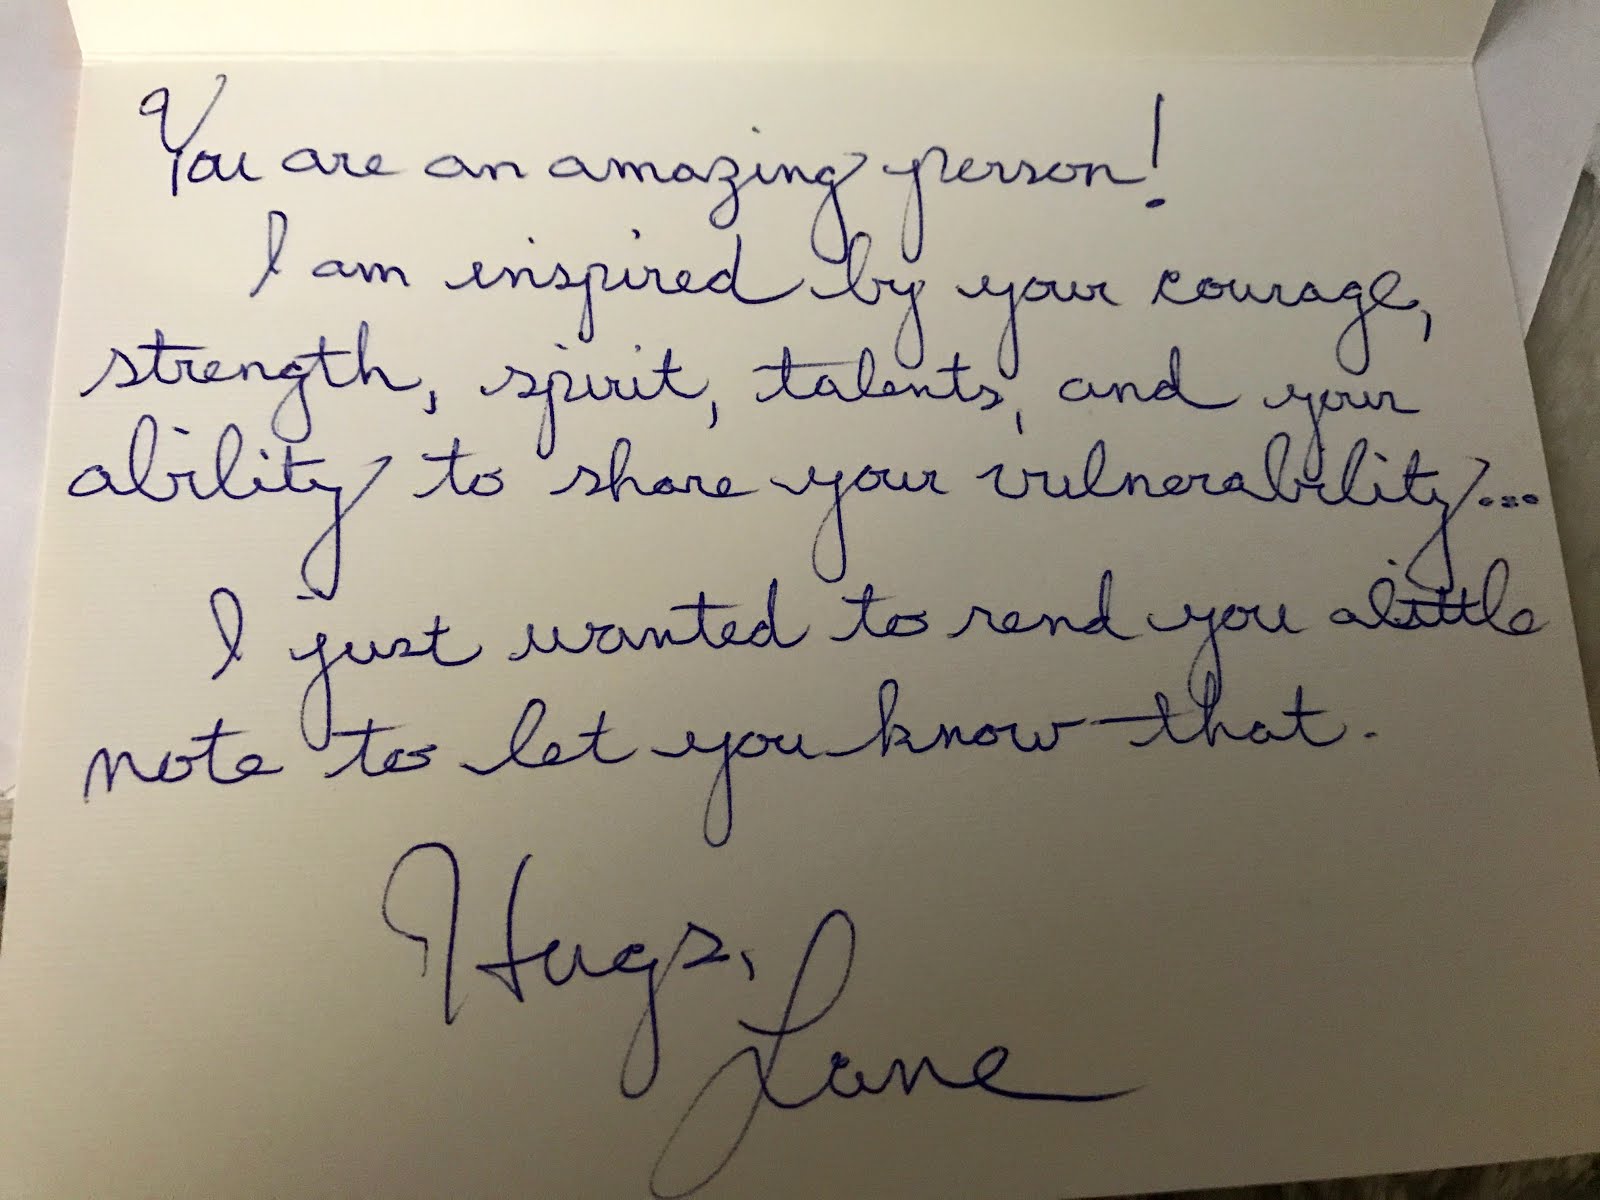 You are an amazing person!
I am inspired by your courage,
strength, spirit, talents, and your
ability to share your vulnerability...
I just wanted to send you a little
note to let you know that.
Hugs,
Lane